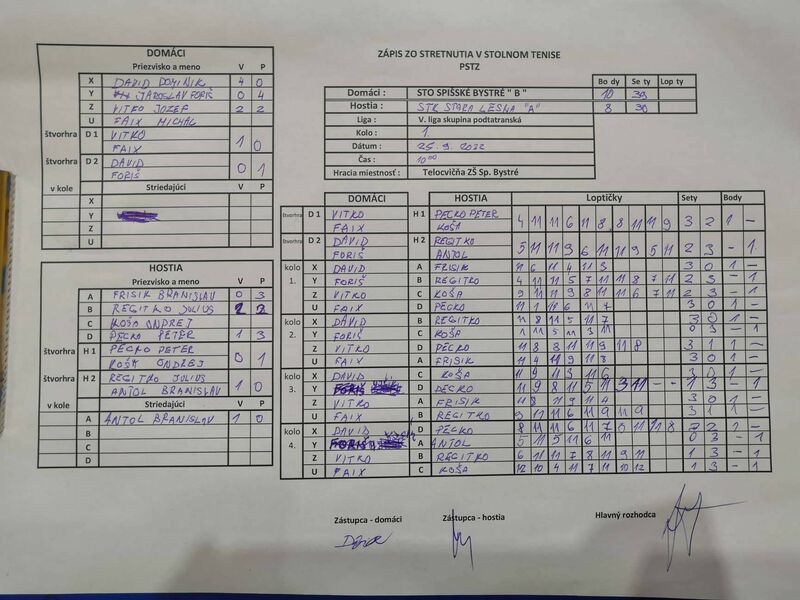 DOMÁCI
Priezvisko a meno V P
X DAVID DOMINIK 4 0
Y JAROSLAV FORIŠ 0 4
Z VITKO JOZEF 2 2
U FAIX MICHAL
štvorhra D 1 VITKO
FAIX 1 0
štvorhra D 2 DAVID
FORIŠ 0 1
v kole Striedajúci
X
Y
Z
U
HOSTIA
Priezvisko a meno V P
A FRISIK BRANISLAV 0 3
B REGITKO JULIUS 2 2
C KOŠA ONDREJ
D PECKO PETER 1 3
štvorhra H 1 PECKO PETER
KOŠA ONDREJ 0 1
štvorhra H 2 REGITKO JULIUS
ANTOL BRANISLAV 1 0
v kole Striedajúci
A ANTOL BRANISLAV 1 0
B
C
D
ZÁPIS ZO STRETNUTIA V STOLNOM TENISE
PSTZ
Bo dy Se ty Lop ty
Domáci : STO SPIŠSKÉ BYSTRÉ " B " 10 39
Hostia : STK STARÁ LESNÁ "A" 8 30
Liga : V. liga skupina podtatranská
Kolo : 1.
Dátum : 25. 9. 2022
Čas : 10 00
Hracia miestnosť : Telocvičňa ZŠ Sp. Bystré
DOMÁCI HOSTIA Loptičky Sety Body
štvorhra D 1 VITKO H 1 PECKO PETER
FAIX KOŠA 4 11 11 6 11 8 8 11 11 9 3 2 1 -
štvorhra D 2 DAVID H 2 REGITKO
FORIŠ ANTOL 5 11 11 9 6 11 11 9 5 11 2 3 - 1
kolo X DAVID A FRISIK 11 6 11 4 11 3 3 0 1 -
1. Y FORIŠ B REGITKO 4 11 11 5 7 11 11 8 7 11 2 3 - 1
Z VITKO C KOŠA 9 11 11 9 8 11 11 6 7 11 2 3 - 1
U FAIX D PECKO 3 0 1 -
kolo X DAVID B REGITKO 11 8 11 5 11 7 3 0 1 -
2. Y FORIŠ C KOŠA 0 3 - 1
Z VITKO D PECKO 11 8 3 11 11 9 11 8 3 1 1 -
U FAIX A FRISIK 11 4 11 9 11 8 3 0 1 -
kolo X DAVID C KOŠA 3 0 1 -
3. Y FORIŠ D PECKO 11 9 8 11 5 11 3 11 - - 1 3 - 1
Z VITKO A FRISIK 11 8 11 9 11 4 3 0 1 -
U FAIX B REGITKO 9 11 11 6 11 9 11 9 3 1 1 -
kolo X DAVID D PECKO 8 11 11 6 11 7 11 11 8 1 -
4. Y FORIŠ A ANTOL 5 11 5 11 6 11 0 3 - 1
Z VITKO B REGITKO 6 11 11 7 8 11 9 11 1 3 - 1
U FAIX C KOŠA 12 10 4 11 7 11 10 12 1 3 - 1
Zástupca - domáci Zástupca - hostia Hlavný rozhodca